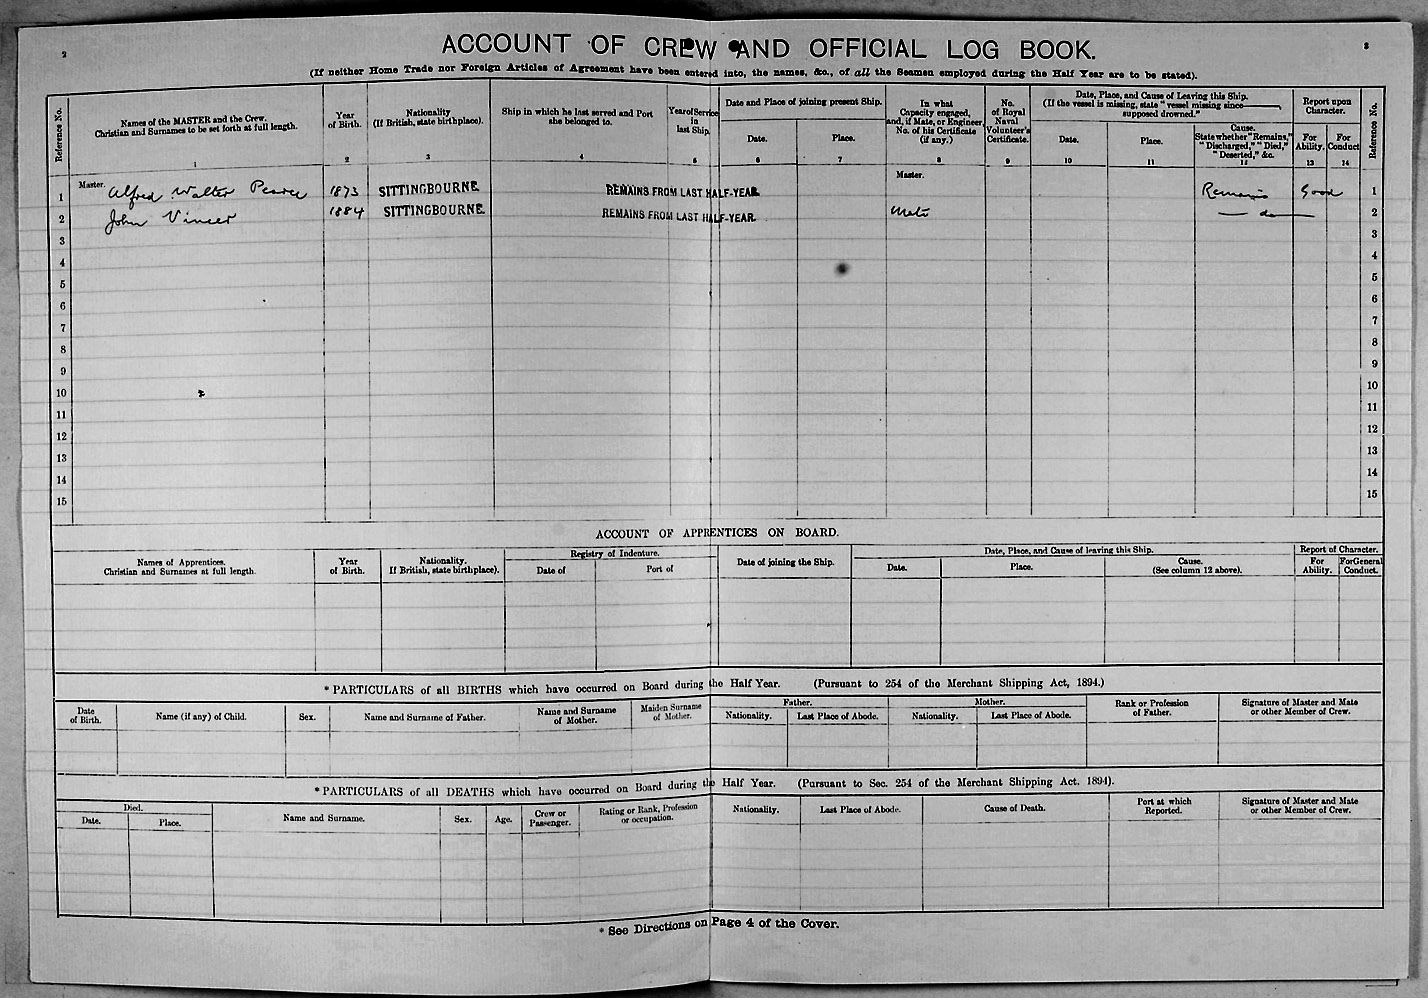 2
3
ACCOUNT OF CREW AND OFFICIAL LOG BOOK.
(If neither Home Trade nor Foreign Articles of Agreement have been entered into, the names, &c., of all the Seamen employed during the Half Year are to be stated).
Reference No.
Names of the MASTER and the Crew.
Christian and Surnames to be set forth at full length.
1
Year of Birth.
2
Nationality
(If British, state birthplace).
3
Ship in which he last served and Port she belonged to.
4
Year of Service in last Ship.
5
Date and Place of joining present Ship.
Date.
6
Place.
7
In what Capacity engaged, and, if Mate, or Engineer, No. of his Certificate (if any.)
8
No. of Royal Naval Volunteer's Certificate.
9
Date, Place, and Cause of Leaving this Ship.
(If the vessel is missing, state "vessel missing since , supposed drowned."
Date.
10
Place.
11
Cause.
State whether "Remains," "Discharged," "Died," "Deserted," &c.
12
Report upon Character.
For Ability.
13
For Conduct
14
Reference No.
1 Master. Alfred Walter Pearce 1873 SITTINGBOURNE. REMAINS FROM LAST HALF-YEAR. Master. Remains Good 1
2 John Vincer 1884 SITTINGBOURNE. REMAINS FROM LAST HALF-YEAR. Mate — do — 2
3 3
4 4
5 5
6 6
7 7
8 8
9 9
10 10
11 11
12 12
13 13
14 14
15 15
ACCOUNT OF APPRENTICES ON BOARD.
Names of Apprentices.
Christian and Surnames at full length.
Year of Birth.
Nationality.
If British, state birthplace).
Registry of Indenture.
Date of
Port of
Date of joining the Ship.
Date, Place, and Cause of leaving this Ship.
Date.
Place.
Cause.
(See column 12 above).
Report of Character.
For Ability.
For General Conduct.
* PARTICULARS of all BIRTHS which have occurred on Board during the Half Year. (Pursuant to 254 of the Merchant Shipping Act, 1894.)
Date of Birth.
Name (if any) of Child.
Sex.
Name and Surname of Father.
Name and Surname of Mother.
Maiden Surname of Mother.
Father.
Nationality.
Last Place of Abode.
Mother.
Nationality.
Last Place of Abode.
Rank or Profession of Father.
Signature of Master and Mate or other Member of Crew.
* PARTICULARS of all DEATHS which have occurred on Board during the Half Year. (Pursuant to Sec. 254 of the Merchant Shipping Act. 1894).
Died.
Date.
Place.
Name and Surname.
Sex.
Age.
Crew or Passenger.
Rating or Rank, Profession or occupation.
Nationality.
Last Place of Abode.
Cause of Death.
Port at which Reported.
Signature of Master and Mate or other Member of Crew.
* See Directions on Page 4 of the Cover.